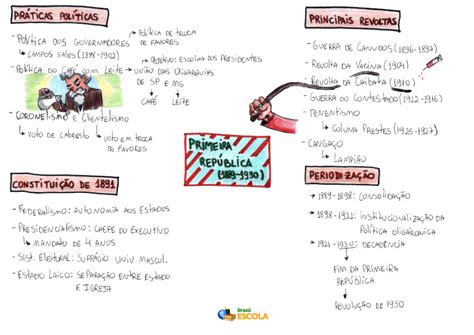 PRÁTICAS POLÍTICAS
- POLÍTICA DOS GOVERNADORES → POLÍTICA DE TROCA
DE FAVORES
↳ CAMPOS SALES (1898-1902)
→ OBJETIVO: ESCOLHA DOS PRESIDENTES
- POLÍTICA DO CAFÉ COM LEITE → UNIÃO DAS OLIGARQUIAS
DE SP E MG
CAFÉ LEITE
- CORONELISMO E CLIENTELISMO
↳ VOTO DE CABRESTO ↳ VOTO EM TROCA
DE FAVORES
CONSTITUIÇÃO DE 1891
- FEDERALISMO: AUTONOMIA AOS ESTADOS
- PRESIDENCIALISMO: CHEFE DO EXECUTIVO
↳ MANDATO DE 4 ANOS
- SIST. ELEITORAL: SUFRÁGIO UNIV. MASCUL.
- ESTADO LAICO: SEPARAÇÃO ENTRE ESTADO
E IGREJA
PRIMEIRA
REPÚBLICA
(1889-1930)
PRINCIPAIS REVOLTAS
- GUERRA DE CANUDOS (1896-1897)
- REVOLTA DA VACINA (1904)
- REVOLTA DA CHIBATA (1910)
- GUERRA DO CONTESTADO (1912-1916)
- TENENTISMO
↳ COLUNA PRESTES (1925-1927)
- CANGAÇO
↳ LAMPIÃO
PERIODIZAÇÃO
→ 1889-1898: CONSOLIDAÇÃO
→ 1898-1921: INSTITUCIONALIZAÇÃO DA
POLÍTICA OLIGÁRQUICA
→ 1921-1930: DECADÊNCIA
FIM DA PRIMEIRA
REPÚBLICA
REVOLUÇÃO DE 1930
Brasil
ESCOLA